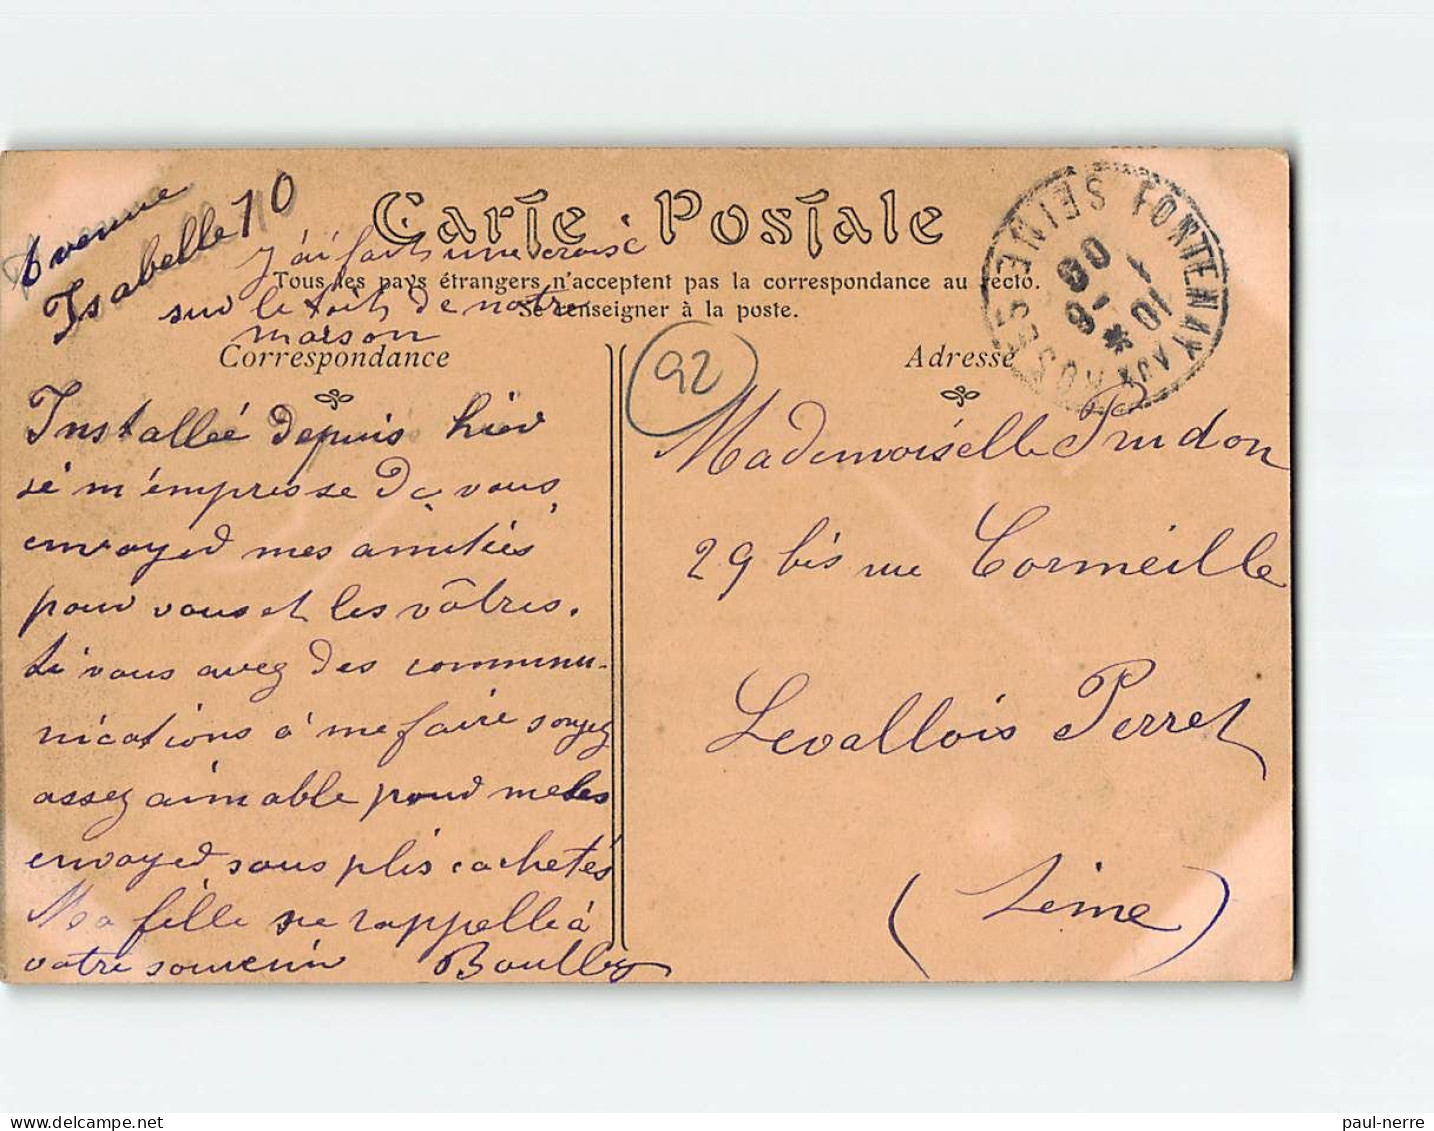 Avenue
Isabelle 10
Carte Postale
j'ai fait une croix
Tous les pays étrangers n'acceptent pas la correspondance au recto.
sur le toit de notre
Se renseigner à la poste.
maison
Correspondance
Adresse
SEINE FONTENAY AUX ROSES
10 1
9 - 08
92
Installée depuis hier
je m'empresse de vous
envoyer mes amitiés
pour vous et les vôtres.
Si vous avez des commu-
nications à me faire soyez
assez aimable pour me les
envoyer sous plis cachetés
Ma fille se rappelle à
votre souvenir Boulley
Mademoiselle Prudon
29 bis rue Cormeille
Levallois Perret
(Seine)
paul-nerre